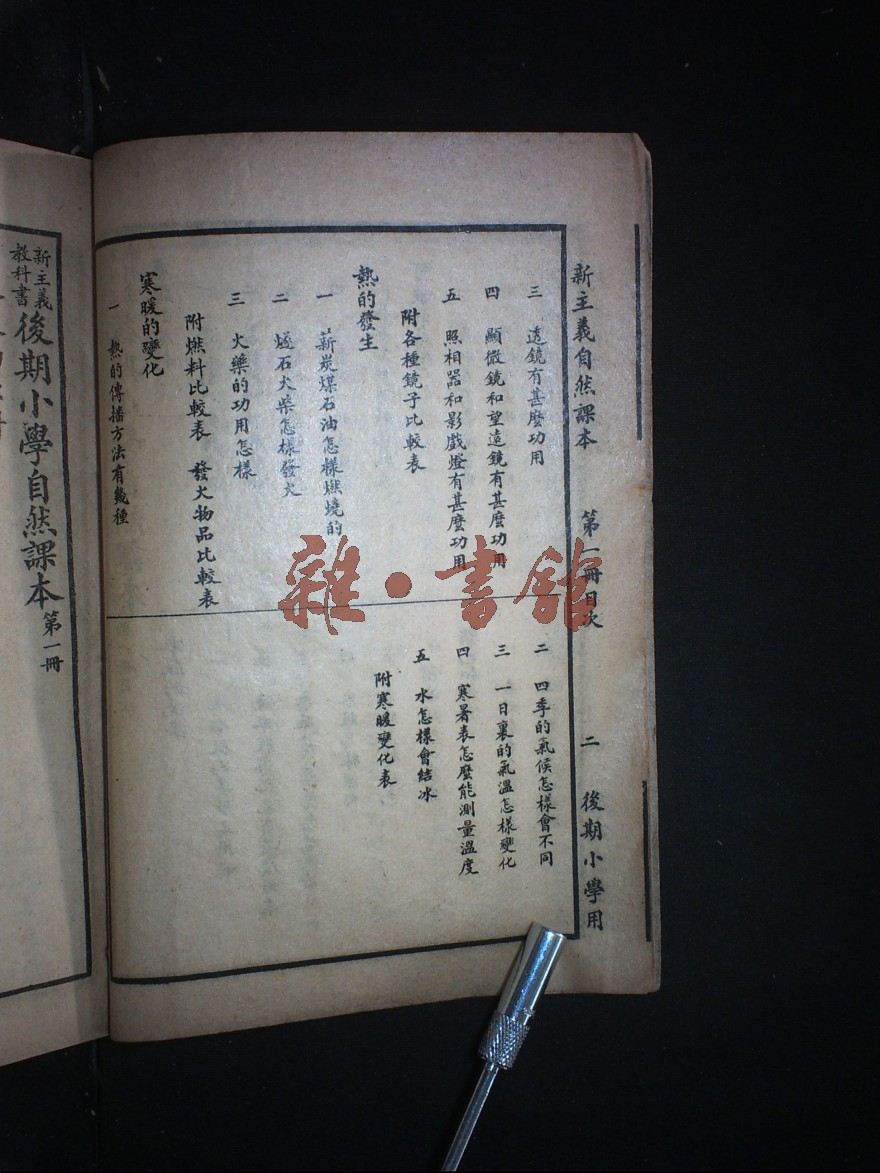 新主義自然課本 第一冊目次 二 後期小學用
三 遠鏡有甚麼功用
四 顯微鏡和望遠鏡有甚麼功用
五 照相器和影戲燈有甚麼功用
附各種鏡子比較表
熱的發生
一 薪炭煤石油怎樣燃燒的
二 燧石火柴怎樣發火
三 火藥的功用怎樣
附燃料比較表 發火物品比較表
寒暖的變化
一 熱的傳播方法有幾種
二 四季的氣候怎樣會不同
三 一日裏的氣溫怎樣變化
四 寒暑表怎麼能測量溫度
五 水怎樣會結冰
附寒暖變化表
新主義
教科書
後期小學自然課本 第一冊
雜·書館